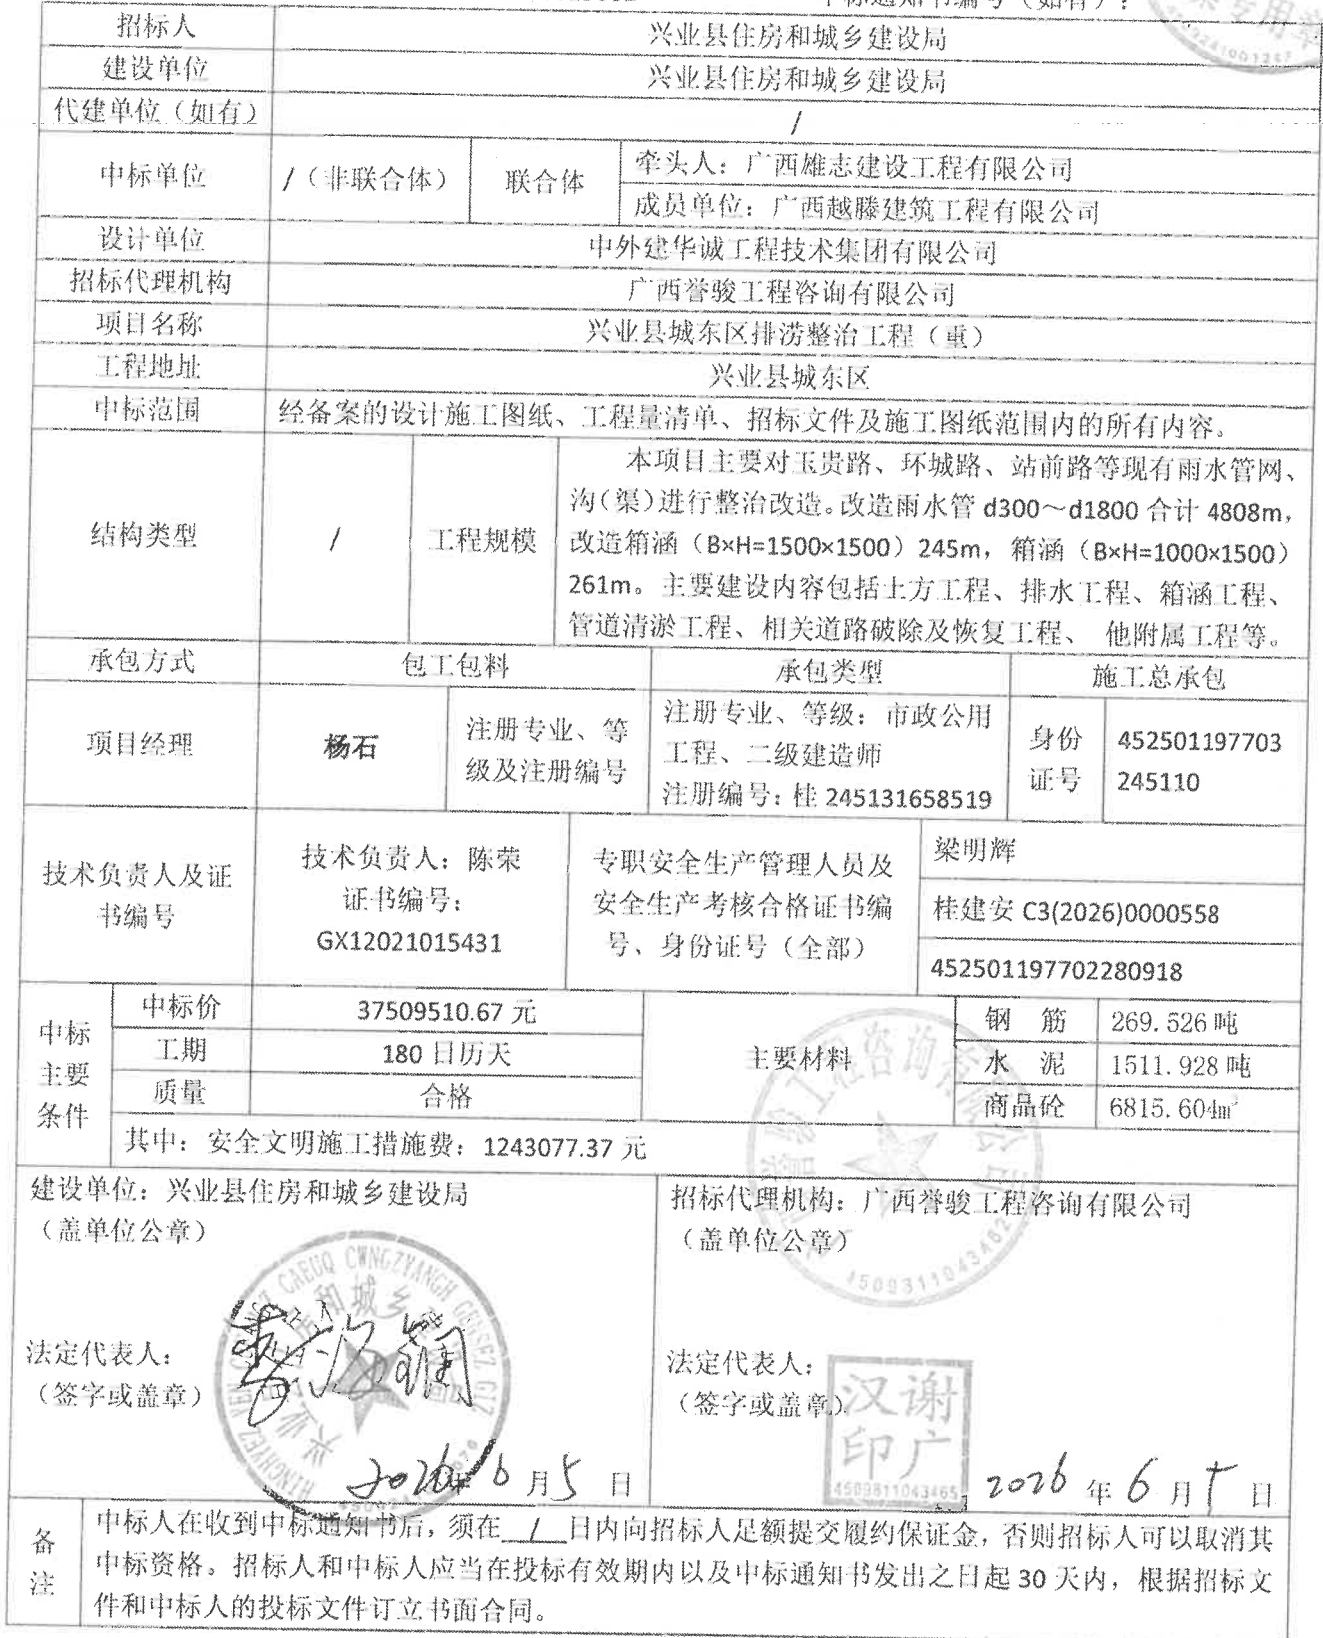 中标通知书编号（如有）：
招标人 兴业县住房和城乡建设局
建设单位 兴业县住房和城乡建设局
代建单位（如有） /
中标单位 /（非联合体） 联合体 牵头人：广西雄志建设工程有限公司
成员单位：广西越滕建筑工程有限公司
设计单位 中外建华诚工程技术集团有限公司
招标代理机构 广西誉骏工程咨询有限公司
项目名称 兴业县城东区排涝整治工程（重）
工程地址 兴业县城东区
中标范围 经备案的设计施工图纸、工程量清单、招标文件及施工图纸范围内的所有内容。
结构类型 / 工程规模
本项目主要对玉贵路、环城路、站前路等现有雨水管网、
沟（渠）进行整治改造。改造雨水管 d300～d1800 合计 4808m，
改造箱涵（B×H=1500×1500）245m，箱涵（B×H=1000×1500）
261m。主要建设内容包括土方工程、排水工程、箱涵工程、
管道清淤工程、相关道路破除及恢复工程、 他附属工程等。
承包方式 包工包料 承包类型 施工总承包
项目经理 杨石
注册专业、等
级及注册编号
注册专业、等级：市政公用
工程、二级建造师
注册编号：桂 245131658519
身份
证号
452501197703
245110
技术负责人及证
书编号
技术负责人：陈荣
证书编号：
GX12021015431
专职安全生产管理人员及
安全生产考核合格证书编
号、身份证号（全部）
梁明辉
桂建安 C3(2026)0000558
452501197702280918
中标
主要
条件
中标价 37509510.67 元
工期 180 日历天
质量 合格
主要材料
钢 筋 269.526 吨
水 泥 1511.928 吨
商品砼 6815.604m³
其中：安全文明施工措施费：1243077.37 元
建设单位：兴业县住房和城乡建设局
（盖单位公章）
法定代表人：
（签字或盖章）
2026年6月5日
招标代理机构：广西誉骏工程咨询有限公司
（盖单位公章）
1509311043462
法定代表人：
（签字或盖章）
汉谢
印广
4509811043465
2026年6月5日
备
注
中标人在收到中标通知书后，须在 / 日内向招标人足额提交履约保证金，否则招标人可以取消其
中标资格。招标人和中标人应当在投标有效期内以及中标通知书发出之日起 30 天内，根据招标文
件和中标人的投标文件订立书面合同。